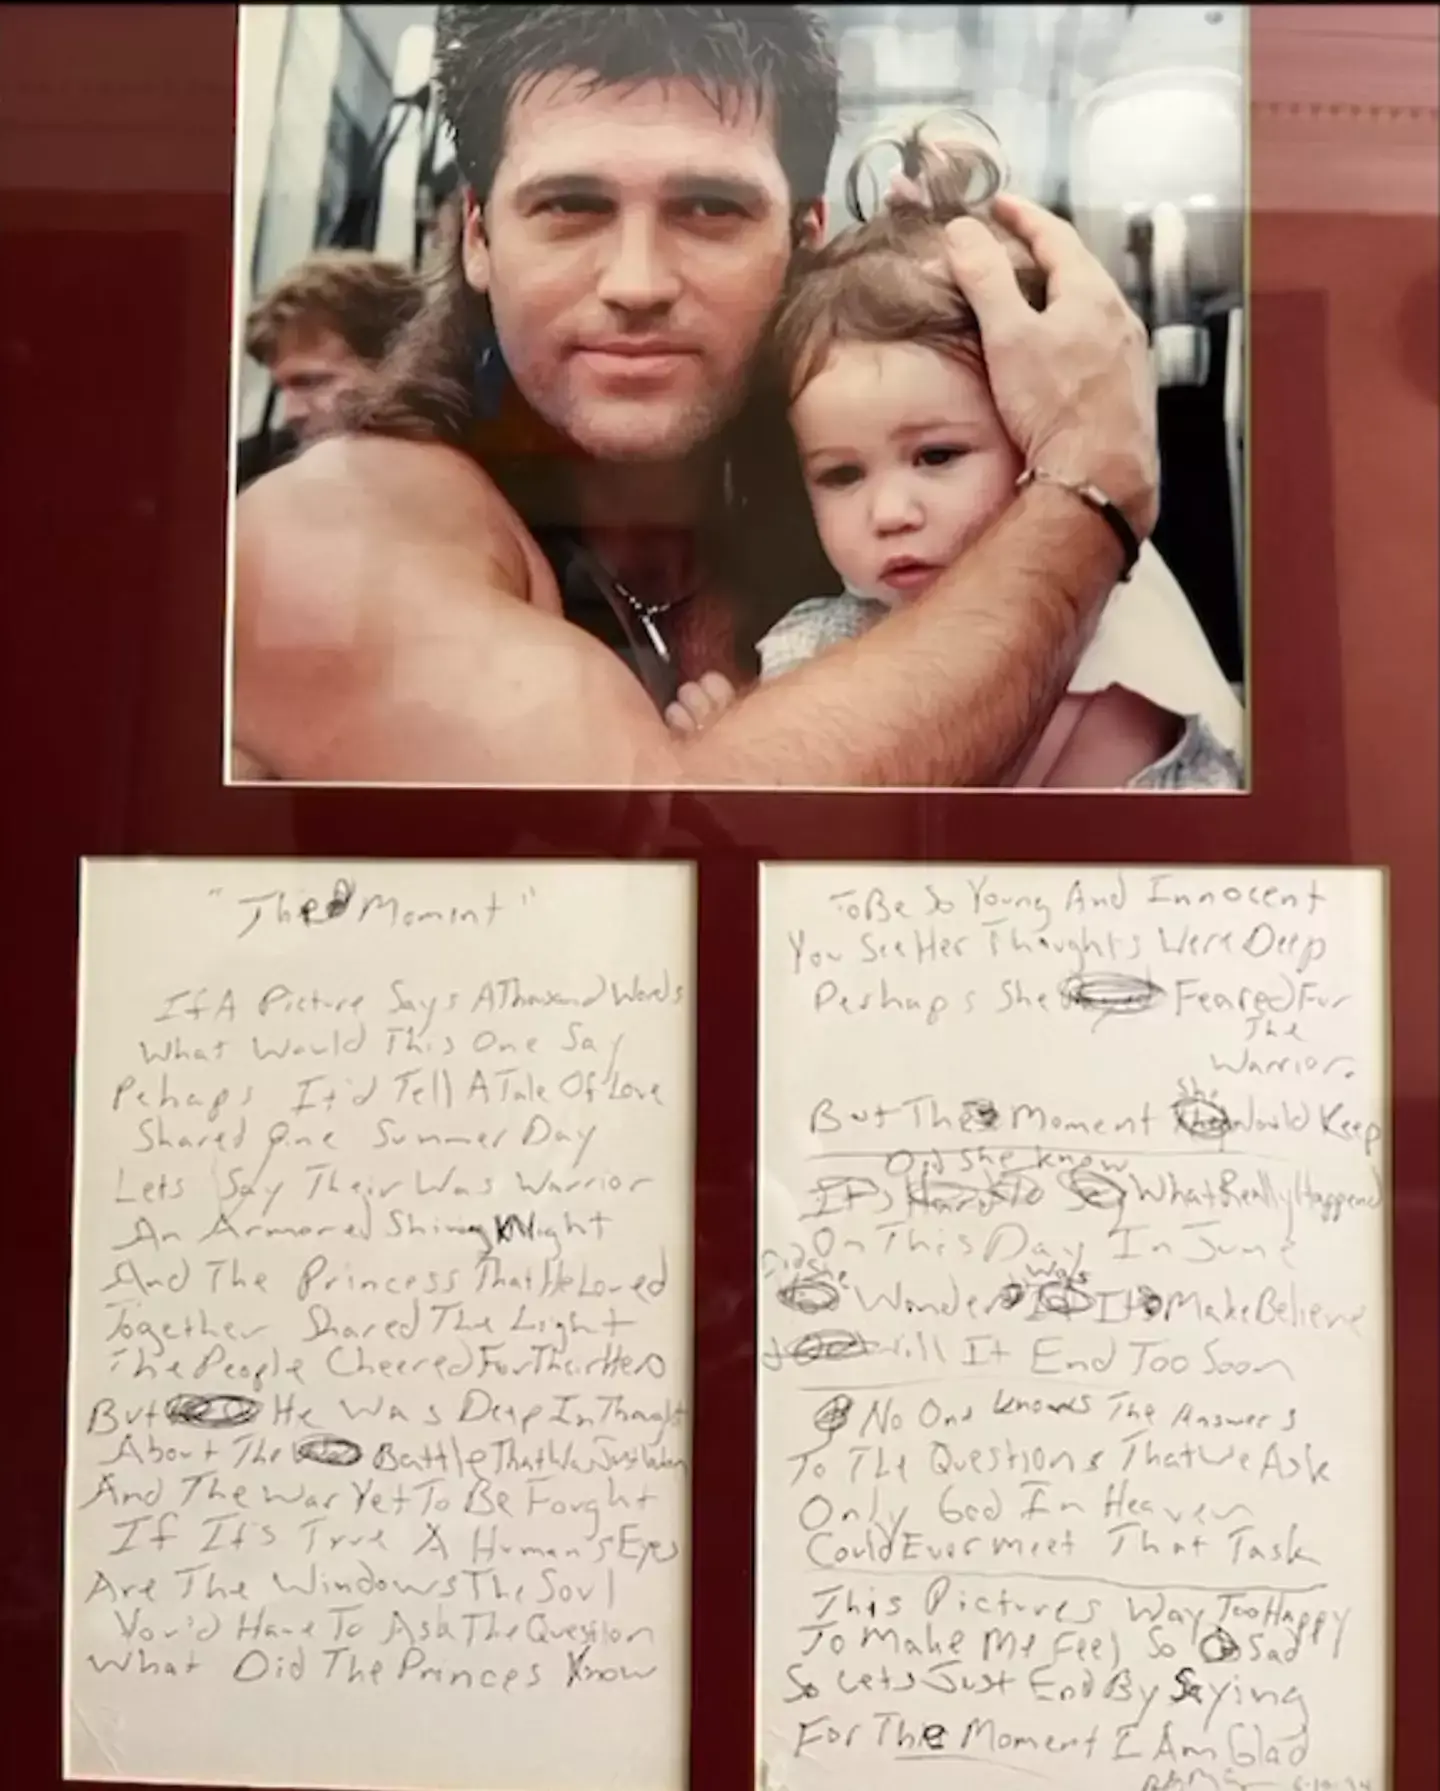 "The Moment"
If A Picture Says A Thousand Words
What Would This One Say
Pehaps It'd Tell A Tale Of Love
Shared One Summer Day
Lets Say Their Was Warrior
An Armored Shining Knight
And The Princess That He Loved
Together Shared The Light
The People Cheered For Their Hero
But He Was Deep In Thought
About The Battle That Was Just
And The War Yet To Be Fought
If It's True A Human's Eyes
Are The Windows The Soul
You'd Have To Ask The Question
What Did The Princes Know
To Be So Young And Innocent
You See Her Thoughts Were Deep
Perhaps She Feared For
The
Warrior.
But The Moment She Would Keep
Did She Know
What Really Happened
On This Day In June
Did She Wonder Was It Make Believe
Will It End Too Soon
No One Knows The Answers
To The Questions That We Ask
Only God In Heaven
Could Ever meet That Task
This Pictures Way Too Happy
To Make Me Feel So Sad
So Lets Just End By Saying
For The Moment I Am Glad